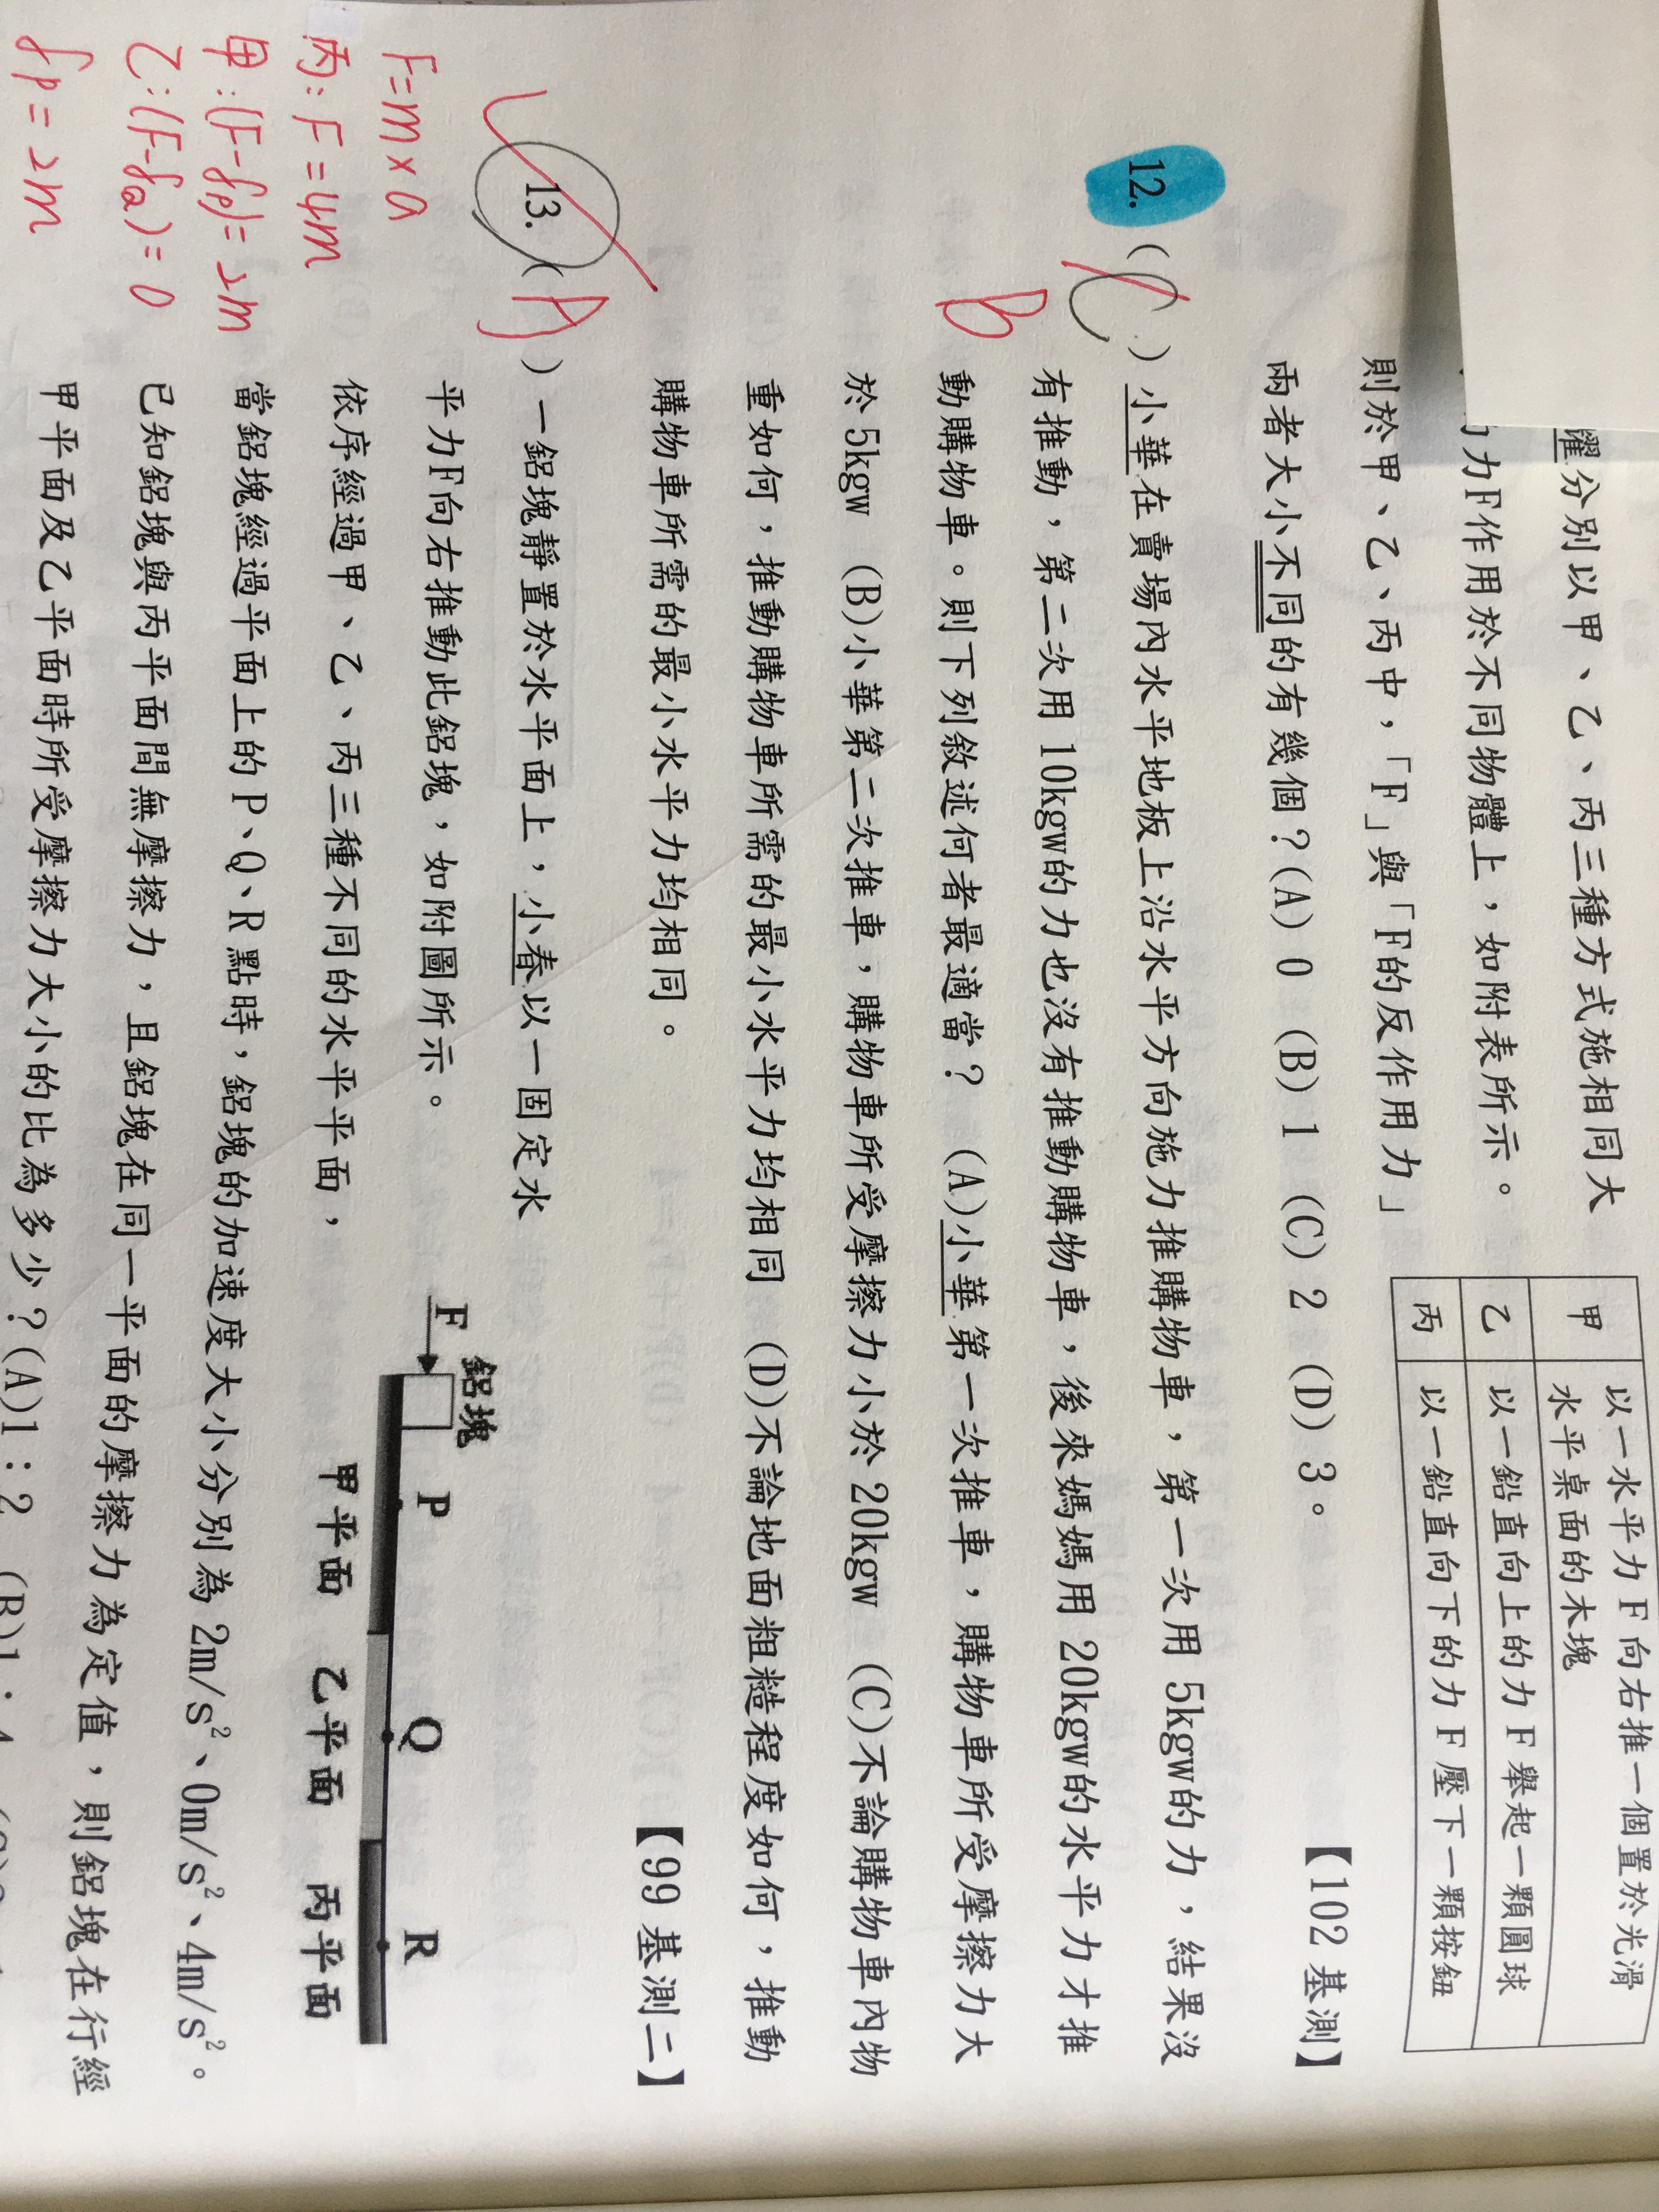 耀分別以甲、乙、丙三種方式施相同大
力F作用於不同物體上，如附表所示。
則於甲、乙、丙中，「F」與「F的反作用力」
兩者大小不同的有幾個？(A) 0 (B) 1 (C) 2 (D) 3。
【102 基測】
甲 以一水平力 F 向右推一個置於光滑
水平桌面的木塊
乙 以一鉛直向上的力 F 舉起一顆圓球
丙 以一鉛直向下的力 F 壓下一顆按鈕
12. ( C ) 小華在賣場內水平地板上沿水平方向施力推購物車，第一次用 5kgw的力，結果沒
B
有推動，第二次用 10kgw的力也沒有推動購物車，後來媽媽用 20kgw的水平力才推
動購物車。則下列敘述何者最適當？ (A)小華第一次推車，購物車所受摩擦力大
於 5kgw (B)小華第二次推車，購物車所受摩擦力小於 20kgw (C)不論購物車內物
重如何，推動購物車所需的最小水平力均相同 (D)不論地面粗糙程度如何，推動
購物車所需的最小水平力均相同。
【99 基測二】
13. ( A ) 一鋁塊靜置於水平面上，小春以一固定水
平力F向右推動此鋁塊，如附圖所示。
依序經過甲、乙、丙三種不同的水平平面，
當鋁塊經過平面上的 P、Q、R 點時，鋁塊的加速度大小分別為 2m/s²、0m/s²、4m/s²。
已知鋁塊與丙平面間無摩擦力，且鋁塊在同一平面的摩擦力為定值，則鋁塊在行經
甲平面及乙平面時所受摩擦力大小的比為多少？(A)1：2
鋁塊
F
P
Q
R
甲平面 乙平面 丙平面
F=m×a
丙:F=4m
甲:(F-fp)=2m
乙:(F-fQ)=0
fp=2m